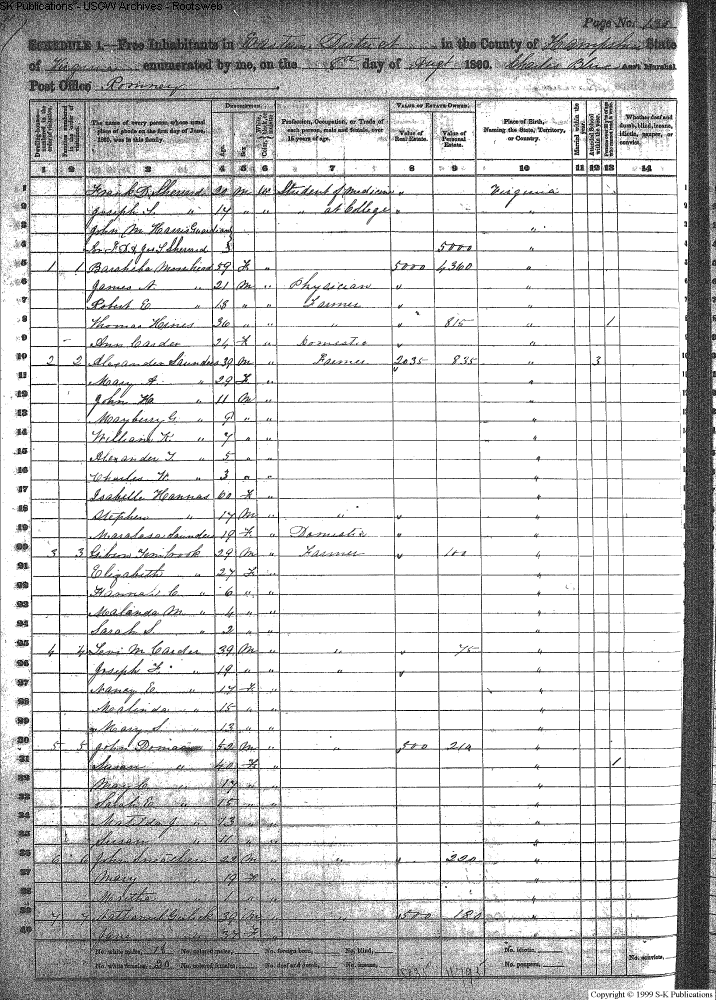 SK Publications - USGW Archives - Rootsweb
Page No.
SCHEDULE 1.—Free Inhabitants in Western District in the County of Hampshire State
of Virginia enumerated by me, on the 8th day of Augt 1860. Charles Blue Ass't Marshal
Post Office Romney
DESCRIPTION. VALUE OF ESTATE OWNED.
The name of every person whose usual place of abode on the first day of June, 1860, was in this family.
Age. Sex.
Profession, Occupation, or Trade of each person, male and female, over 15 years of age.
Value of Real Estate. Value of Personal Estate.
Place of Birth, Naming the State, Territory, or Country.
Married within the year. Attended School within the year.
Whether deaf and dumb, blind, insane, idiotic, pauper, or convict.
1 2 3 4 5 6 7 8 9 10 11 12 13 14
1 Frank D. Sherrard 20 M W Student of Medicine " Virginia
2 Joseph S. " 17 " " " at College " " "
3 John M Harris Guardian "
4 for F. D & Jos S Sherrard 5000 "
5 1 1 59 F " 5000 4360 "
6 James A " 21 M " Physician " "
7 Robert E " 18 " " Farmer " "
8 Thomas Hines 36 " " " " 815 " 1
9 Ann Carder 24 F " Domestic "
10 2 2 Alexander Saunders 39 M " Farmer 2035 835 " 3
11 Mary A. " 29 F "
12 John H. " 11 M "
13 Mayberry G. " 9 " " "
14 William K. " 7 " " "
15 Alexander T. " 5 " " "
16 Charles W. " 3 " " "
17 Isabella Hannas 60 F " "
18 Stephen " 17 M " " " "
19 Saunders 19 F " Domestic " "
20 3 3 Timbrook 29 M " Farmer " 100 "
21 Elizabeth " 27 F " "
22 Hannah C. " 6 " " "
23 Malinda M " 4 " " "
24 Sarah S. " 2 " " "
25 4 4 Levi M Carder 39 M " " " 75 "
26 Joseph F. " 19 " " " " "
27 Nancy E " 17 F " "
28 Malinda " 15 " " "
29 Mary S. " 13 " " "
30 5 5 John 52 M " " 800 214 "
31 Susan " 40 F " " 1
32 Mary C " 17 " " "
33 Sarah E " 15 " " "
34 Matilda J " 13 " " "
35 Susan " 11 " " "
36 6 6 John 23 M " " " 220 "
37 Mary " 19 F " "
38 " 1 " " "
39 7 7 Nathaniel Gulick 30 M " " 1500 180 "
40 F "
No. white males, No. colored males, No. foreign born, No. blind, No. idiotic,
No. white females, 20 No. colored females, No. deaf and dumb, No. insane, No. paupers, No. convicts,
Copyright © 1999 S-K Publications